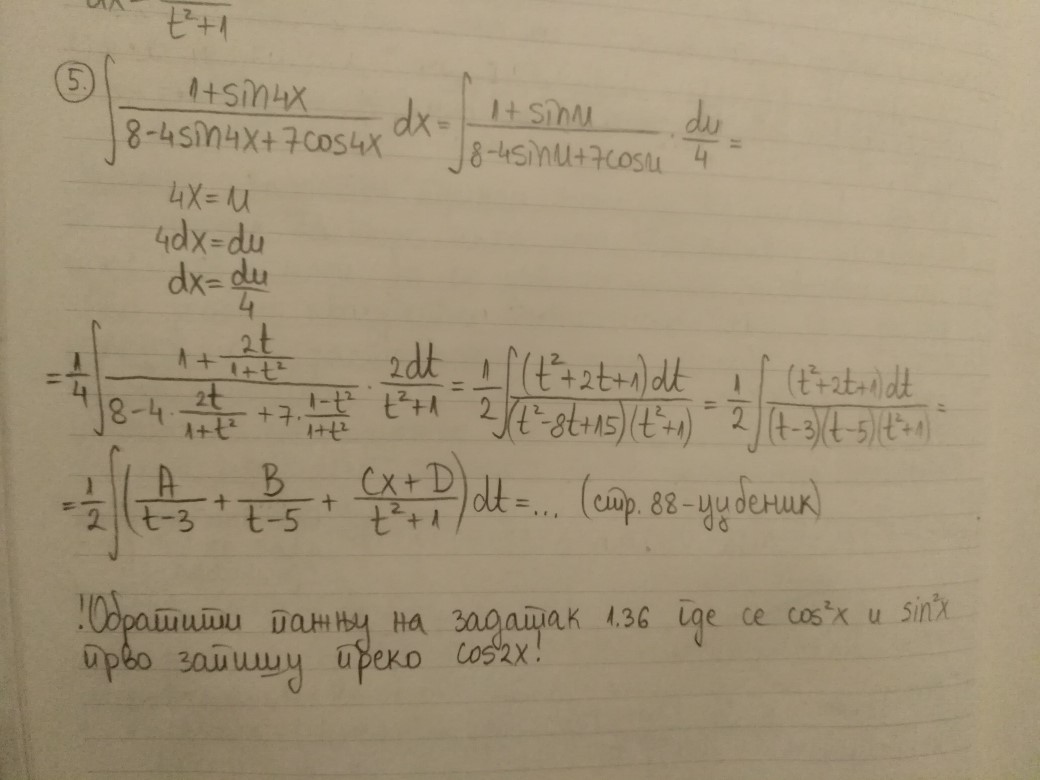 t²+1
5. ∫ (1+sin4x)/(8-4sin4x+7cos4x) dx = ∫ (1+sinu)/(8-4sinu+7cosu) · du/4 =
4x=u
4dx=du
dx=du/4
= 1/4 ∫ (1 + 2t/(1+t²))/(8-4·2t/(1+t²)+7·(1-t²)/(1+t²)) · 2dt/(t²+1) = 1/2 ∫ (t²+2t+1)dt/((t²-8t+15)(t²+1)) = 1/2 ∫ (t²+2t+1)dt/((t-3)(t-5)(t²+1)) =
= 1/2 ∫ (A/(t-3) + B/(t-5) + (Cx+D)/(t²+1)) dt = ... (стр. 88-уџбеник)
! Обратити пажњу на задатак 1.36 где се cos²x и sin²x
прво запишу преко cos2x!